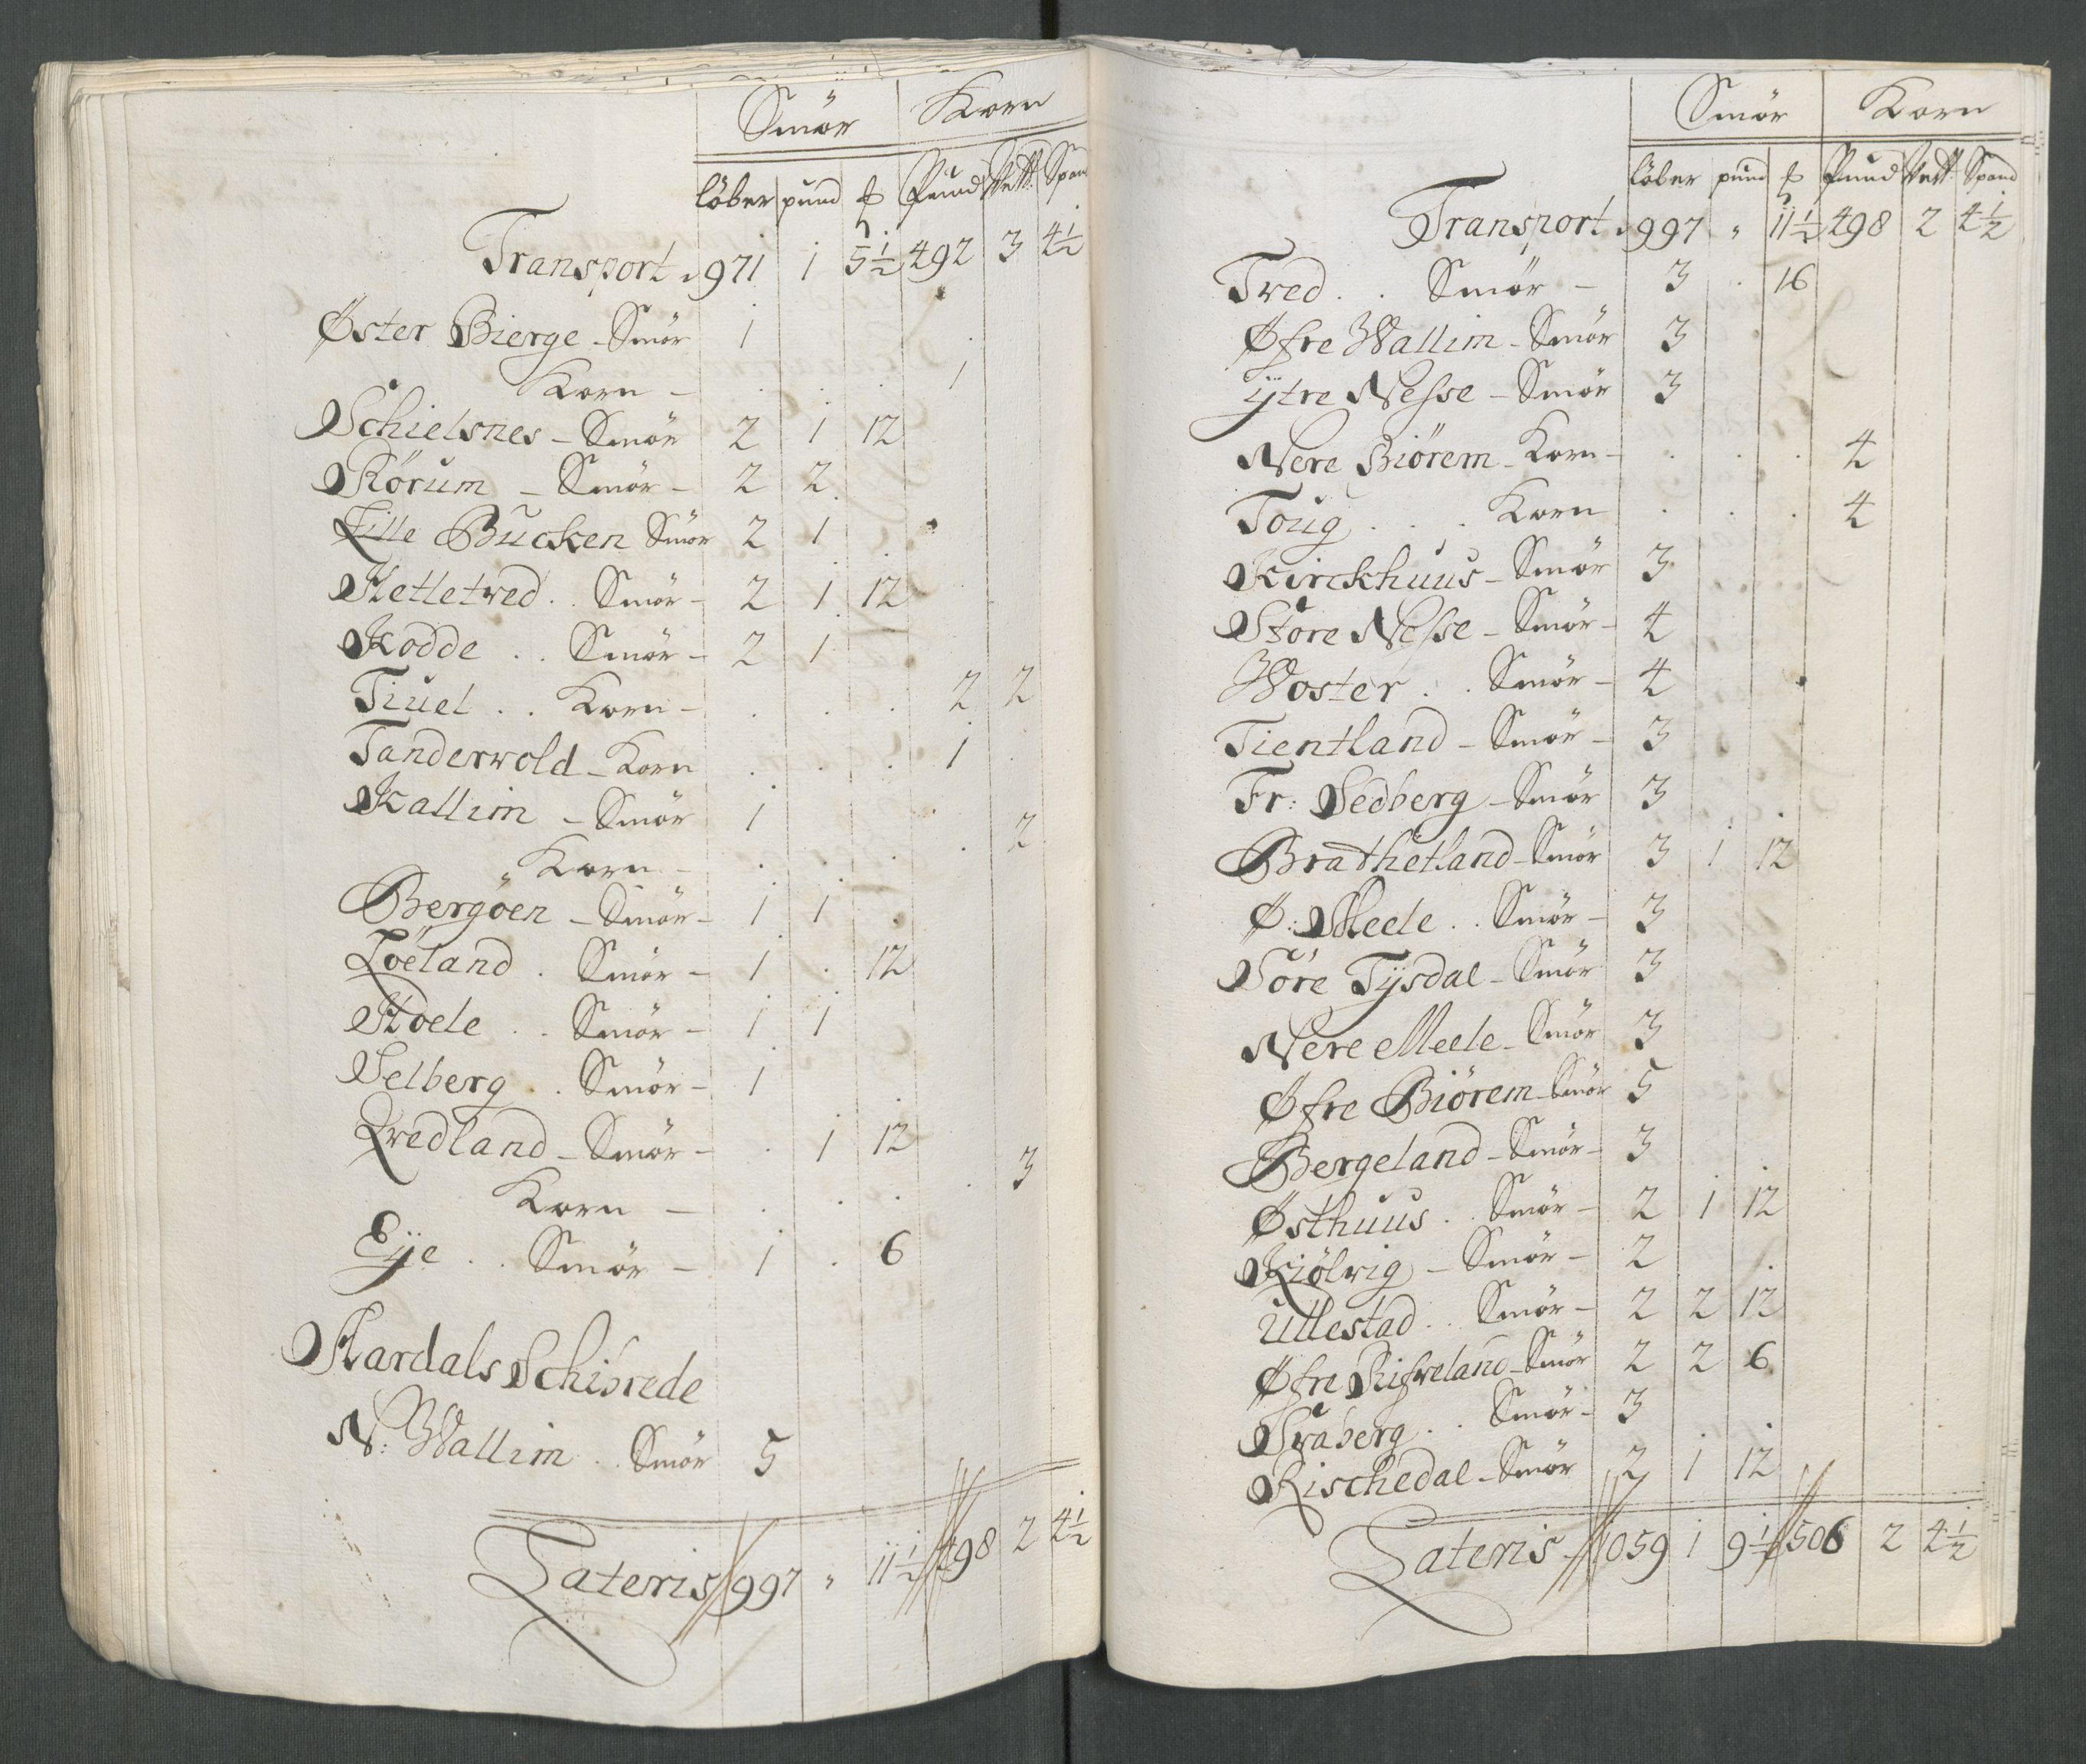 Smör Korn
löber pund ℔ Pund Vett: Span
Transport 971 1 5½ 492 3 4½
Øster Bierge - Smör 1
Korn - . . . 1
Schielsnes - Smör 2 1 12
Rörum - Smör - 2 2
Lille Bucken Smör 2 1
Ketletved . . Smör - 2 1 12
Kodde . . Smör - 2 1
Tiuel . . Korn - . . . 2 2
Tanderwold - Korn . . . 1
Kallim - Smör 1
„ Korn - . . . . 2
Bergöen - Smör - 1 1
Löeland . Smör - 1 . 12
Stoele . . Smör - 1 1
Selberg . . Smör - 1
Qvedland - Smör - . 1 12
Korn - . . . . 3
Eÿe . . Smör - 1 . 6
Aardals Schibrede
N: Wallim . . Smör 5
Lateris 997 „ 11½ 498 2 4½
Smör Korn
löber pund ℔ Pund Vett: Spand
Transport 997 „ 11½ 498 2 4½
Tved . . Smör - 3 . 16
Øfre Wallim - Smör 3
ÿtre Nesse - Smör 3
Nere Biörem - Korn - . . . 4
Toug . . . Korn . . . 4
Kirckhuus - Smör 3
Store Nesse - Smör - 4
Woster . . Smör - 4
Tientland - Smör - 3
Fr: Sedberg - Smör 3
Brathetland - Smör 3 1 12
Ø: Meele . . Smör - 3
Söre Tÿsdal - Smör 3
Nere Meele - Smör 3
Øfre Biörem - Smör 5
Bergeland - Smör - 3
Østhuus . . Smör - 2 1 12
Kiölvig - Smör - 2
Ullestad . . Smör - 2 2 12
Øfre Rifveland - Smör 2 2 6
Svaberg . . Smör - 3
Rischedal - Smör 2 1 12
Lateris - 1059 1 9½ 506 2 4½